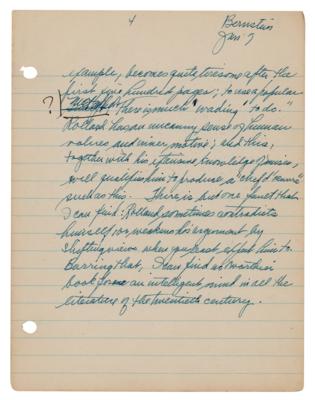 4
Bernstein
Jan 7
example, becomes quite tiresome after the
first five hundred pages; to use a popular
? metaphor "there is much 'wading' to do."
Rolland has an uncanny sense of human
values and inner motive; and this,
together with his extensive knowledge of music,
will qualify him to produce a "chef d'œuvre"
such as this. There is but one fault that
I can find: Rolland sometimes contradicts
himself, or weakens his argument by
shifting views when you least expect him to.
Barring that, I can find no worthier
book for an intelligent mind in all the
literature of the twentieth century.